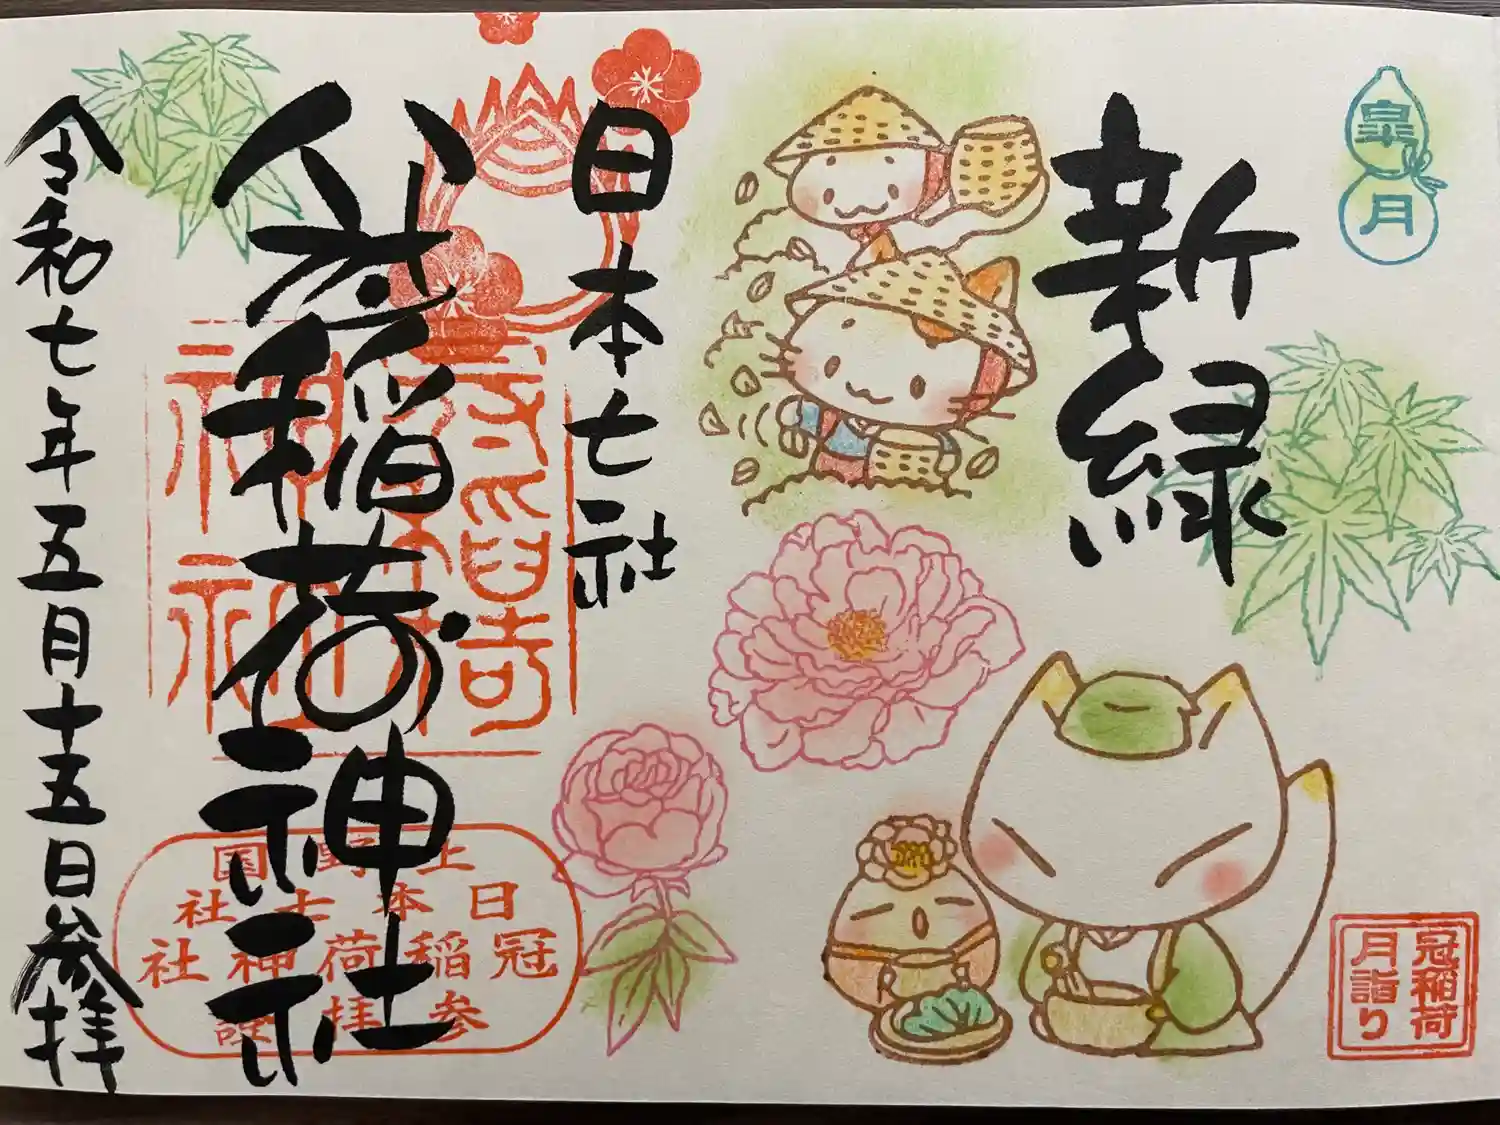 皐月
新緑
冠稲荷
月詣り
日本七社
冠稲荷神社
上野国
日本七社
冠稲荷神社
令和七年五月十五日参拝